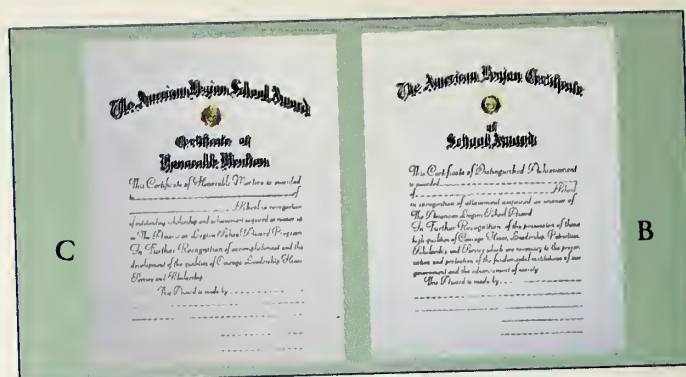 The American Legion School Award
Certificate of
Honorable Mention
This Certificate of Honorable Mention is awarded
to of
School in recognition
of outstanding scholarship and achievement acquired as runner up
in The American Legion School Award Program
In Further Recognition of accomplishment and the
development of the qualities of Courage Leadership Honor
Service and Scholarship
This Award is made by
C
The American Legion Certificate
of
School Award
This Certificate of Distinguished Achievement
is awarded
of School
in recognition of attainment acquired as winner of
The American Legion School Award
In Further Recognition of the possession of those
high qualities of Courage Honor Leadership Patriotism
Scholarship and Service which are necessary to the preser-
vation and protection of the fundamental institutions of our
government and the advancement of society
This Award is made by
B